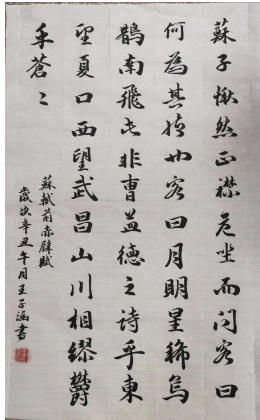 蘇子愀然正襟危坐而問客曰
何為其然也客曰月明星稀烏
鵲南飛此非曹孟德之詩乎東
望夏口西望武昌山川相繆鬱
乎蒼〻
蘇軾前赤壁賦
歲次辛丑午月王子涵書